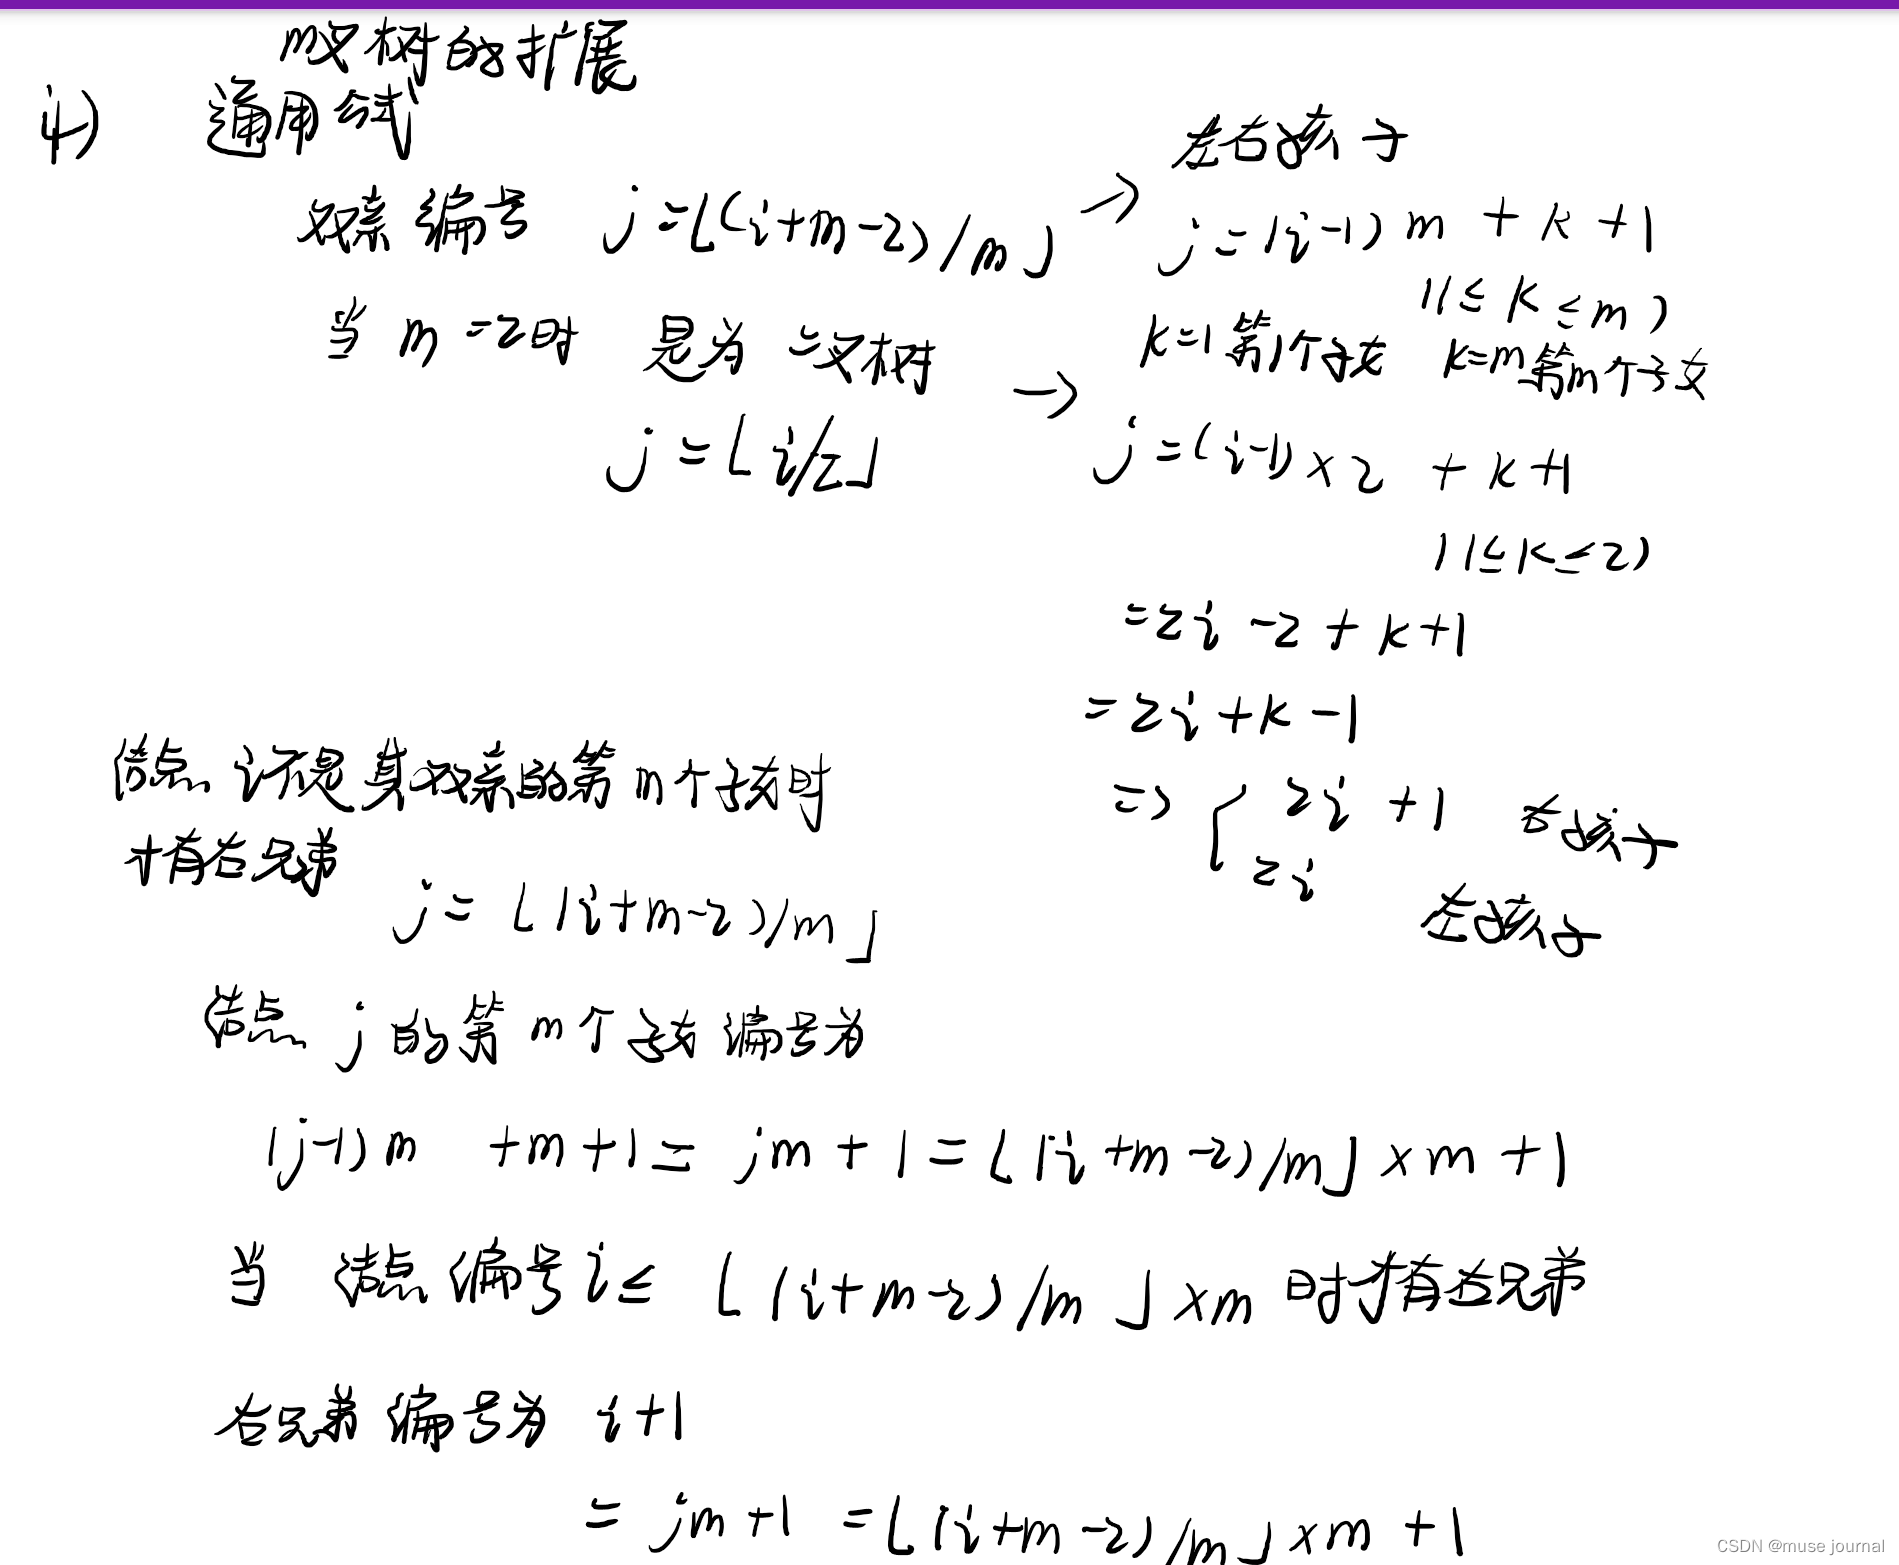 m叉树的扩展
4) 通用公式
双亲编号 j=⌊(i+m-2)/m⌋ →
左右孩子
j=(i-1)m+k+1
(1≤k≤m)
k=1第1个子女 k=m第m个子女
当m=2时 是为二叉树 →
j=⌊i/2⌋
j=(i-1)×2+k+1
(1≤k≤2)
=2i-2+k+1
=2i+k-1
=> { 2i+1 右孩子
2i 左孩子
结点i不是其双亲的第m个子女时
才有右兄弟
j=⌊(i+m-2)/m⌋
结点j的第m个子女编号为
(j-1)m+m+1=jm+1=⌊(i+m-2)/m⌋×m+1
当结点编号i≤⌊(i+m-2)/m⌋×m时才有右兄弟
右兄弟编号为 i+1
=jm+1=⌊(i+m-2)/m⌋×m+1
CSDN @muse journal